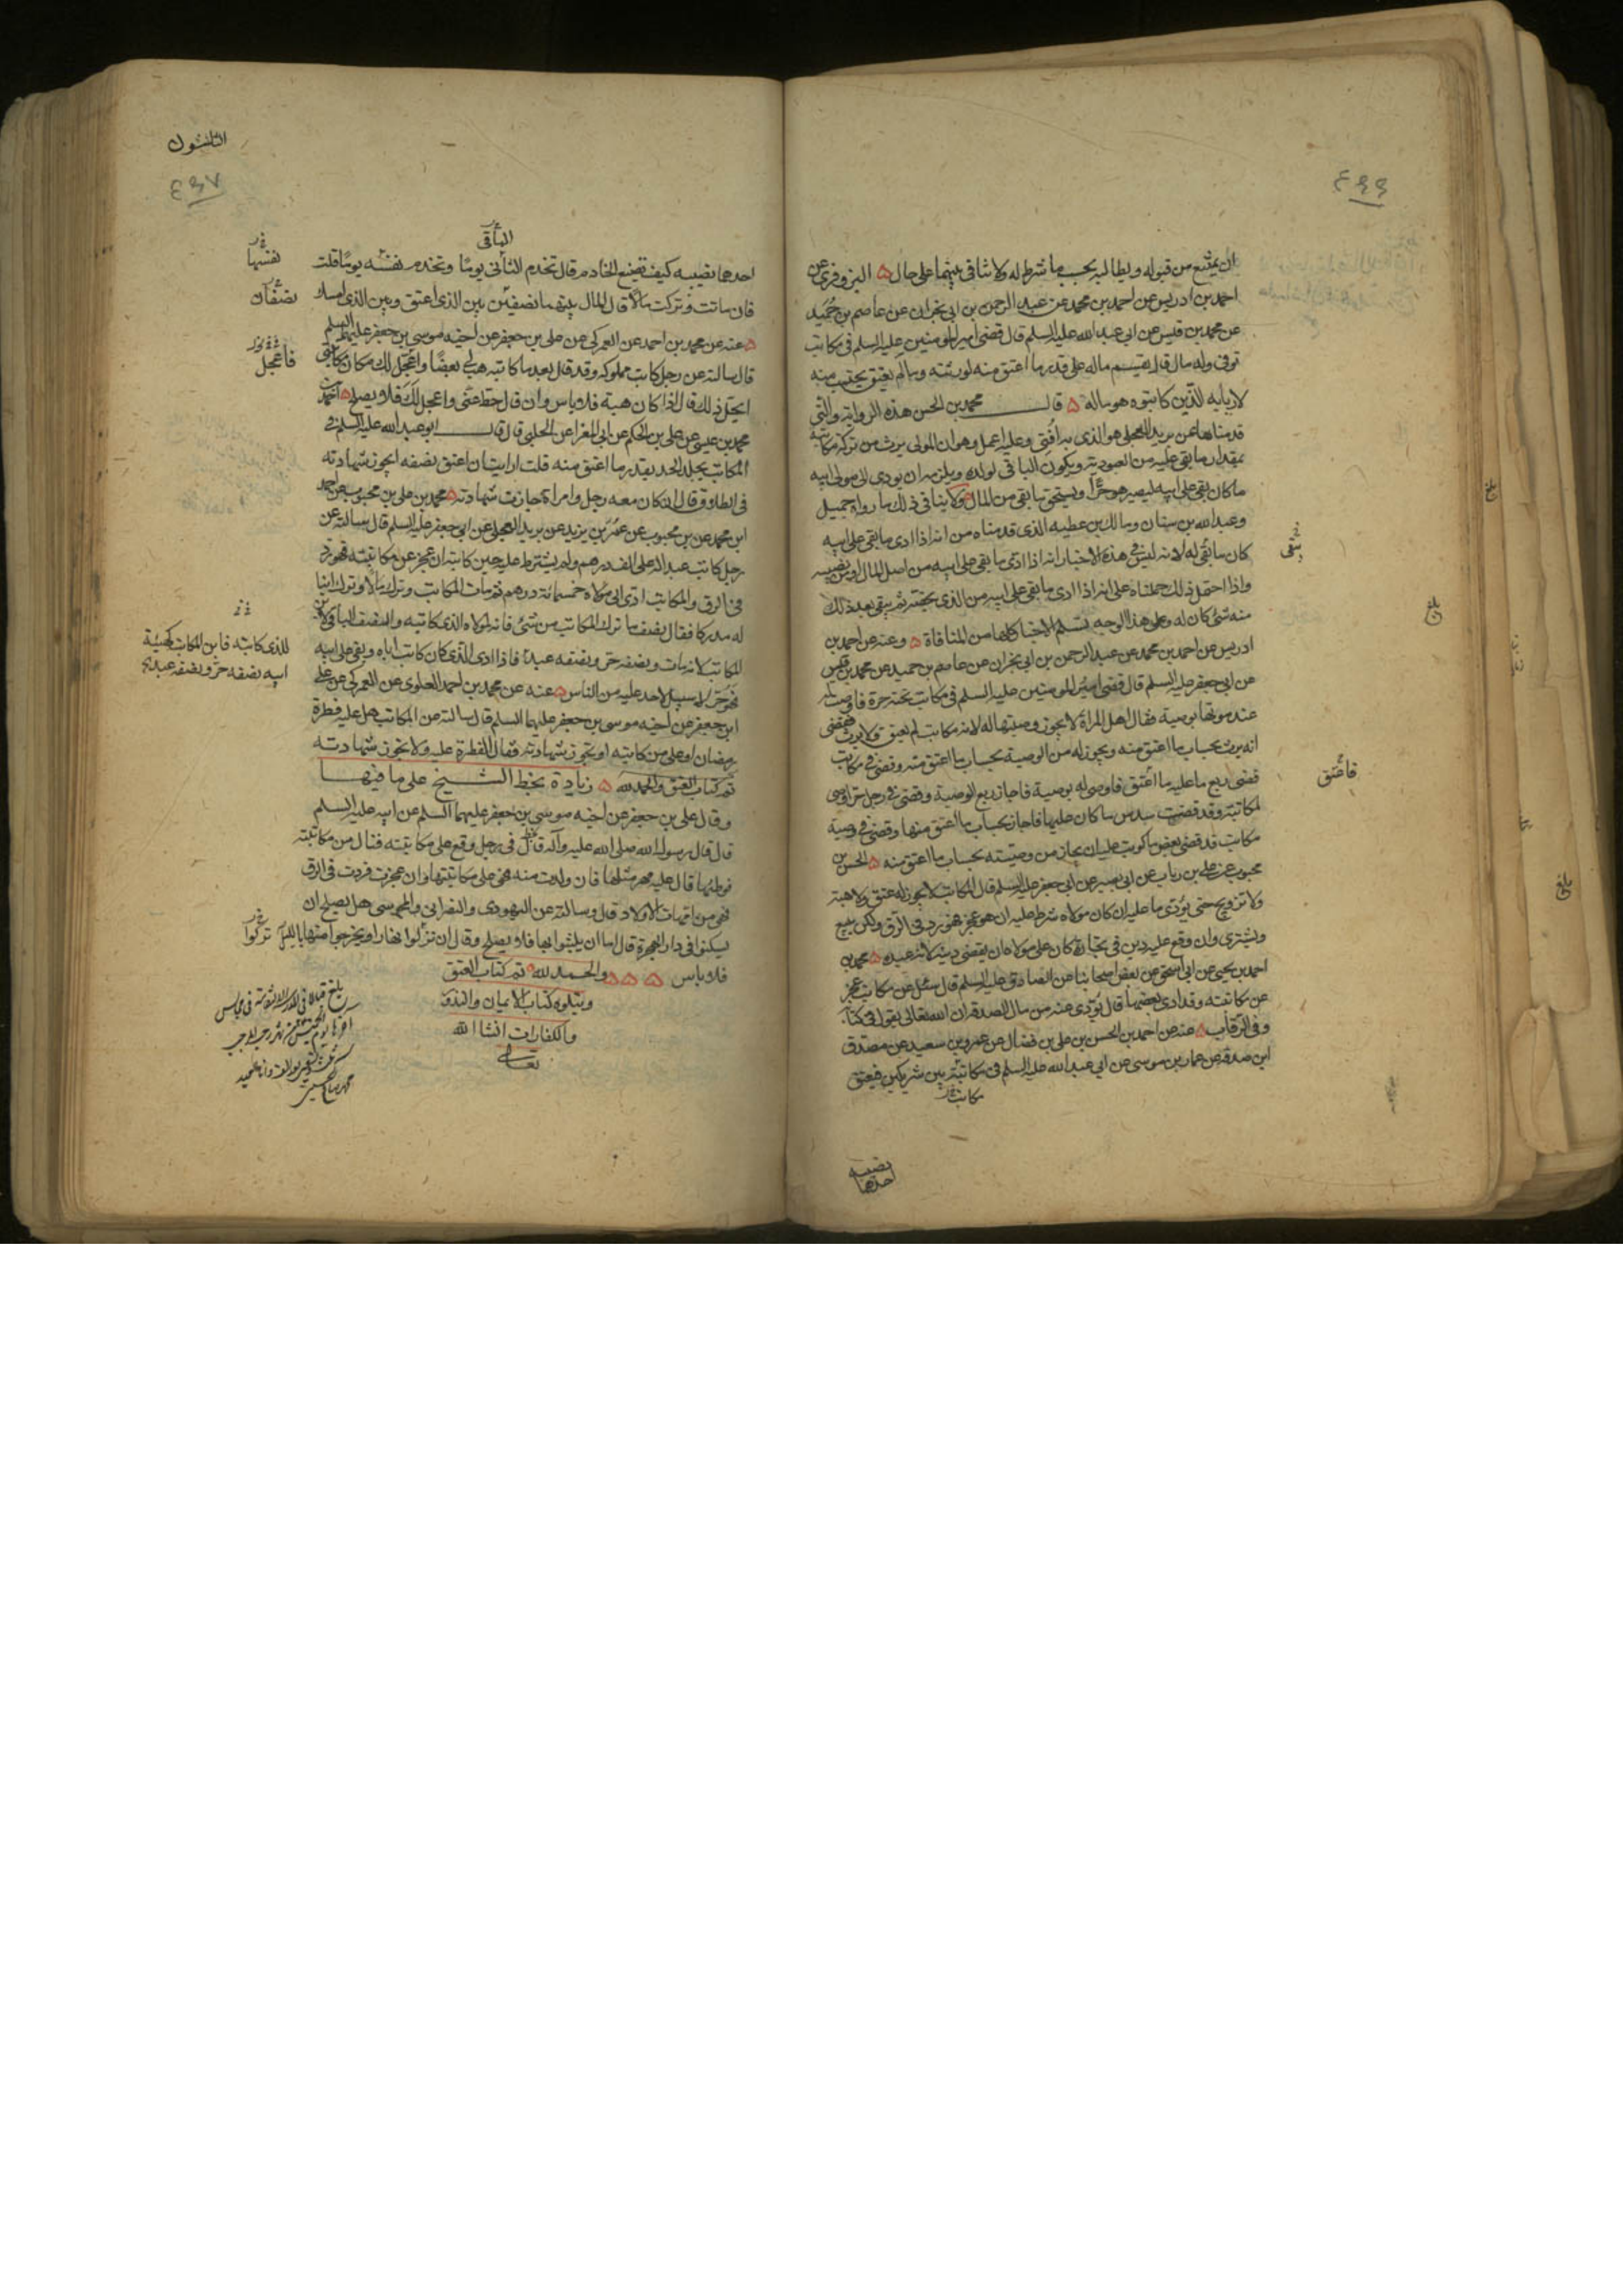 ٤٩٦
ان يمتنع من قبوله ويطالبه بحسب ما شرط له ولا تنافي بينهما على حال ه البزوفري عن
احمد بن ادريس عن احمد بن محمد عن عبد الرحمن بن ابي نجران عن عاصم بن حميد
عن محمد بن قيس عن ابي عبد الله عليه السلم قال قضى امير المومنين عليه السلم في مكاتب
توفى وله مال قال يقسم ماله على قدر ما اعتق منه لورثته وما لم يعتق يحتسب منه
لاربابه الذين كاتبوه هو ماله ه قال محمد بن الحسن هذه الرواية والتي
قدمناها عن بريد العجلي هو الذي به افتي وعليه اعمل وهو ان المولى يرث من تركة مكاتبه
بمقدار ما بقي عليه من العبودية ويكون الباقي لولده ويلزمه ان يودي الى مولى ابيه
ما كان بقي على ابيه ليصير هو حرا ويستحق ما بقي من المال ولا ينافي ذلك ما رواه جميل
وعبد الله بن سنان ومالك بن عطيه الذي قدمناه من انه اذا ادى ما بقي على ابيه
كان ما بقي له لانه ليس في هذه الاخبار انه اذا ادى ما بقي على ابيه من اصل المال او من نصيبه
واذا احتمل ذلك حملناه على انه اذا ادى ما بقي على ابيه من الذي يخصه ثم يبقى بعد ذلك
منه شئ كان له وعلى هذا الوجه تسلم الاخبار كلها من المنافاة ه وعنه عن احمد بن
ادريس عن احمد بن محمد عن عبد الرحمن بن ابي نجران عن عاصم بن حميد عن محمد بن قيس
عن ابي جعفر عليه السلم قال قضى امير المومنين عليه السلم في مكاتب تحته حرة فاوصت له
عند موتها بوصية فقال اهل المراة لا يجوز وصيتها له لانه مكاتب لم يعتق ولا يرث فقضى
انه يرث بحساب ما اعتق منه ويجوز له من الوصية بحساب ما اعتق منه وقضى في مكاتب
قضى ربع ما عليه مما اعتق فاوصى له بوصية فاجاز ربع الوصية وقضى في رجل حر اوصى
لمكاتبته وقد قضت سدس ما كان عليها فاجاز بحساب ما اعتق منها وقضى في وصية
مكاتب قد قضى بعض ما كوتب عليه ان يجاز من وصيته بحساب ما اعتق منه ه الحسن بن
محبوب عن علي بن رباب عن ابي بصير عن ابي جعفر عليه السلم قال المكاتب لا يجوز له عتق ولا هبة
ولا تزويج حتى يؤدى ما عليه ان كان مولاه شرط عليه ان هو عجز فهو رد في الرق ولكن يبيع
ويشترى وان وقع عليه دين في تجارة كان على مولاه ان يقضي دينه لانه عبده ه محمد بن
احمد بن يحيى عن ابي اسحق عن بعض اصحابنا عن الصادق عليه السلم قال سئل عن مكاتب عجز
عن مكاتبته وقد ادى بعضها قال يؤدى عنه من مال الصدقة ان الله تعالى يقول في كتابه
وفي الرقاب ه عنه عن احمد بن الحسن بن علي بن فضال عن عمرو بن سعيد عن مصدق
ابن صدقة عن عمار بن موسى عن ابي عبد الله عليه السلم في مكاتبة بين شريكين فيعتق
مكاتب
احدهما
نصيبه
يبقى
فاعتق
بلغ
بلغ
بلغ
الثلثون
٤٩٧
الباقي
احدهما نصيبه كيف تصنع الخادم قال تخدم الثاني يوما وتخدم نفسه يوما قلت
فان ماتت وتركت مالا قال المال بينهما نصفين بين الذي اعتق وبين الذي امسك
ه عنه عن محمد بن احمد عن العمركي عن علي بن جعفر عن اخيه موسى بن جعفر عليهما السلم
قال سالته عن رجل كاتب مملوكه وقد قال بعد ما كاتبه هب لي بعضا واعجل لك مكان مكاتبتي
ايحل ذلك قال اذا كان هبة فلا باس وان قال حط عني واعجل لك فلا يصلح ه احمد بن
محمد بن عيسى عن علي بن الحكم عن ابي المغرا عن الحلبي قال قال ابو عبد الله عليه السلم في
المكاتب يجلد الحد بقدر ما اعتق منه قلت ارايت ان اعتق نصفه ايجوز شهادته
في الطلاق قال ان كان معه رجل وامراة جازت شهادته ه محمد بن علي بن محبوب عن احمد
ابن محمد عن بن محبوب عن عمر بن يزيد عن بريد العجلي عن ابي جعفر عليه السلم قال سالته عن
رجل كاتب عبدا له على الف درهم ولم يشترط عليه حين كاتبه ان عجز عن مكاتبته فهو رد
في الرق والمكاتب ادى الى مولاه خمسمائة درهم ثم مات المكاتب وترك مالا وترك ابنا
له مدركا فقال نصف ما ترك المكاتب من شئ فانه لمولاه الذي كاتبه والنصف الباقي لابن
المكاتب لانه مات ونصفه حر ونصفه عبد فاذا ادى الذي كان كاتب اباه وبقي على ابيه
فهو حر لا سبيل لاحد عليه من الناس ه عنه عن محمد بن احمد العلوي عن العمركي عن علي
ابن جعفر عن اخيه موسى بن جعفر عليهما السلم قال سالته عن المكاتب هل عليه فطرة
رمضان او على من كاتبه او تجوز شهادته فقال الفطرة عليه ولا تجوز شهادته
تم كتاب العتق والحمد لله ه زيادة بخط الشيخ على ما فيها
وقال علي بن جعفر عن اخيه موسى بن جعفر عليهما السلم عن ابيه عليه السلم
قال قال رسول الله صلى الله عليه وآله قال في رجل وقع على مكاتبته فنال من مكاتبته
فوطئها قال عليه مهر مثلها فان ولدت منه فهي على مكاتبتها وان عجزت فردت في الرق
فهي من امهات الاولاد قال وسالته عن اليهودي والنصراني والمجوسي هل يصلح ان
يسكنوا في دار الهجرة قال اما ان يلبثوا بها فلا يصلح وقال ان نزلوا نهارا ويخرجوا منها بالليل
فلا باس ه ه ه والحمد لله تم كتاب العتق
ويتلوه كتاب الايمان والنذور
والكفارات انشا الله
تعالى
نفسها
نصفان
فاعجل
للذي كاتبه فابن المكاتب كهيئة
ابيه نصفه حر ونصفه عبد
تركوا